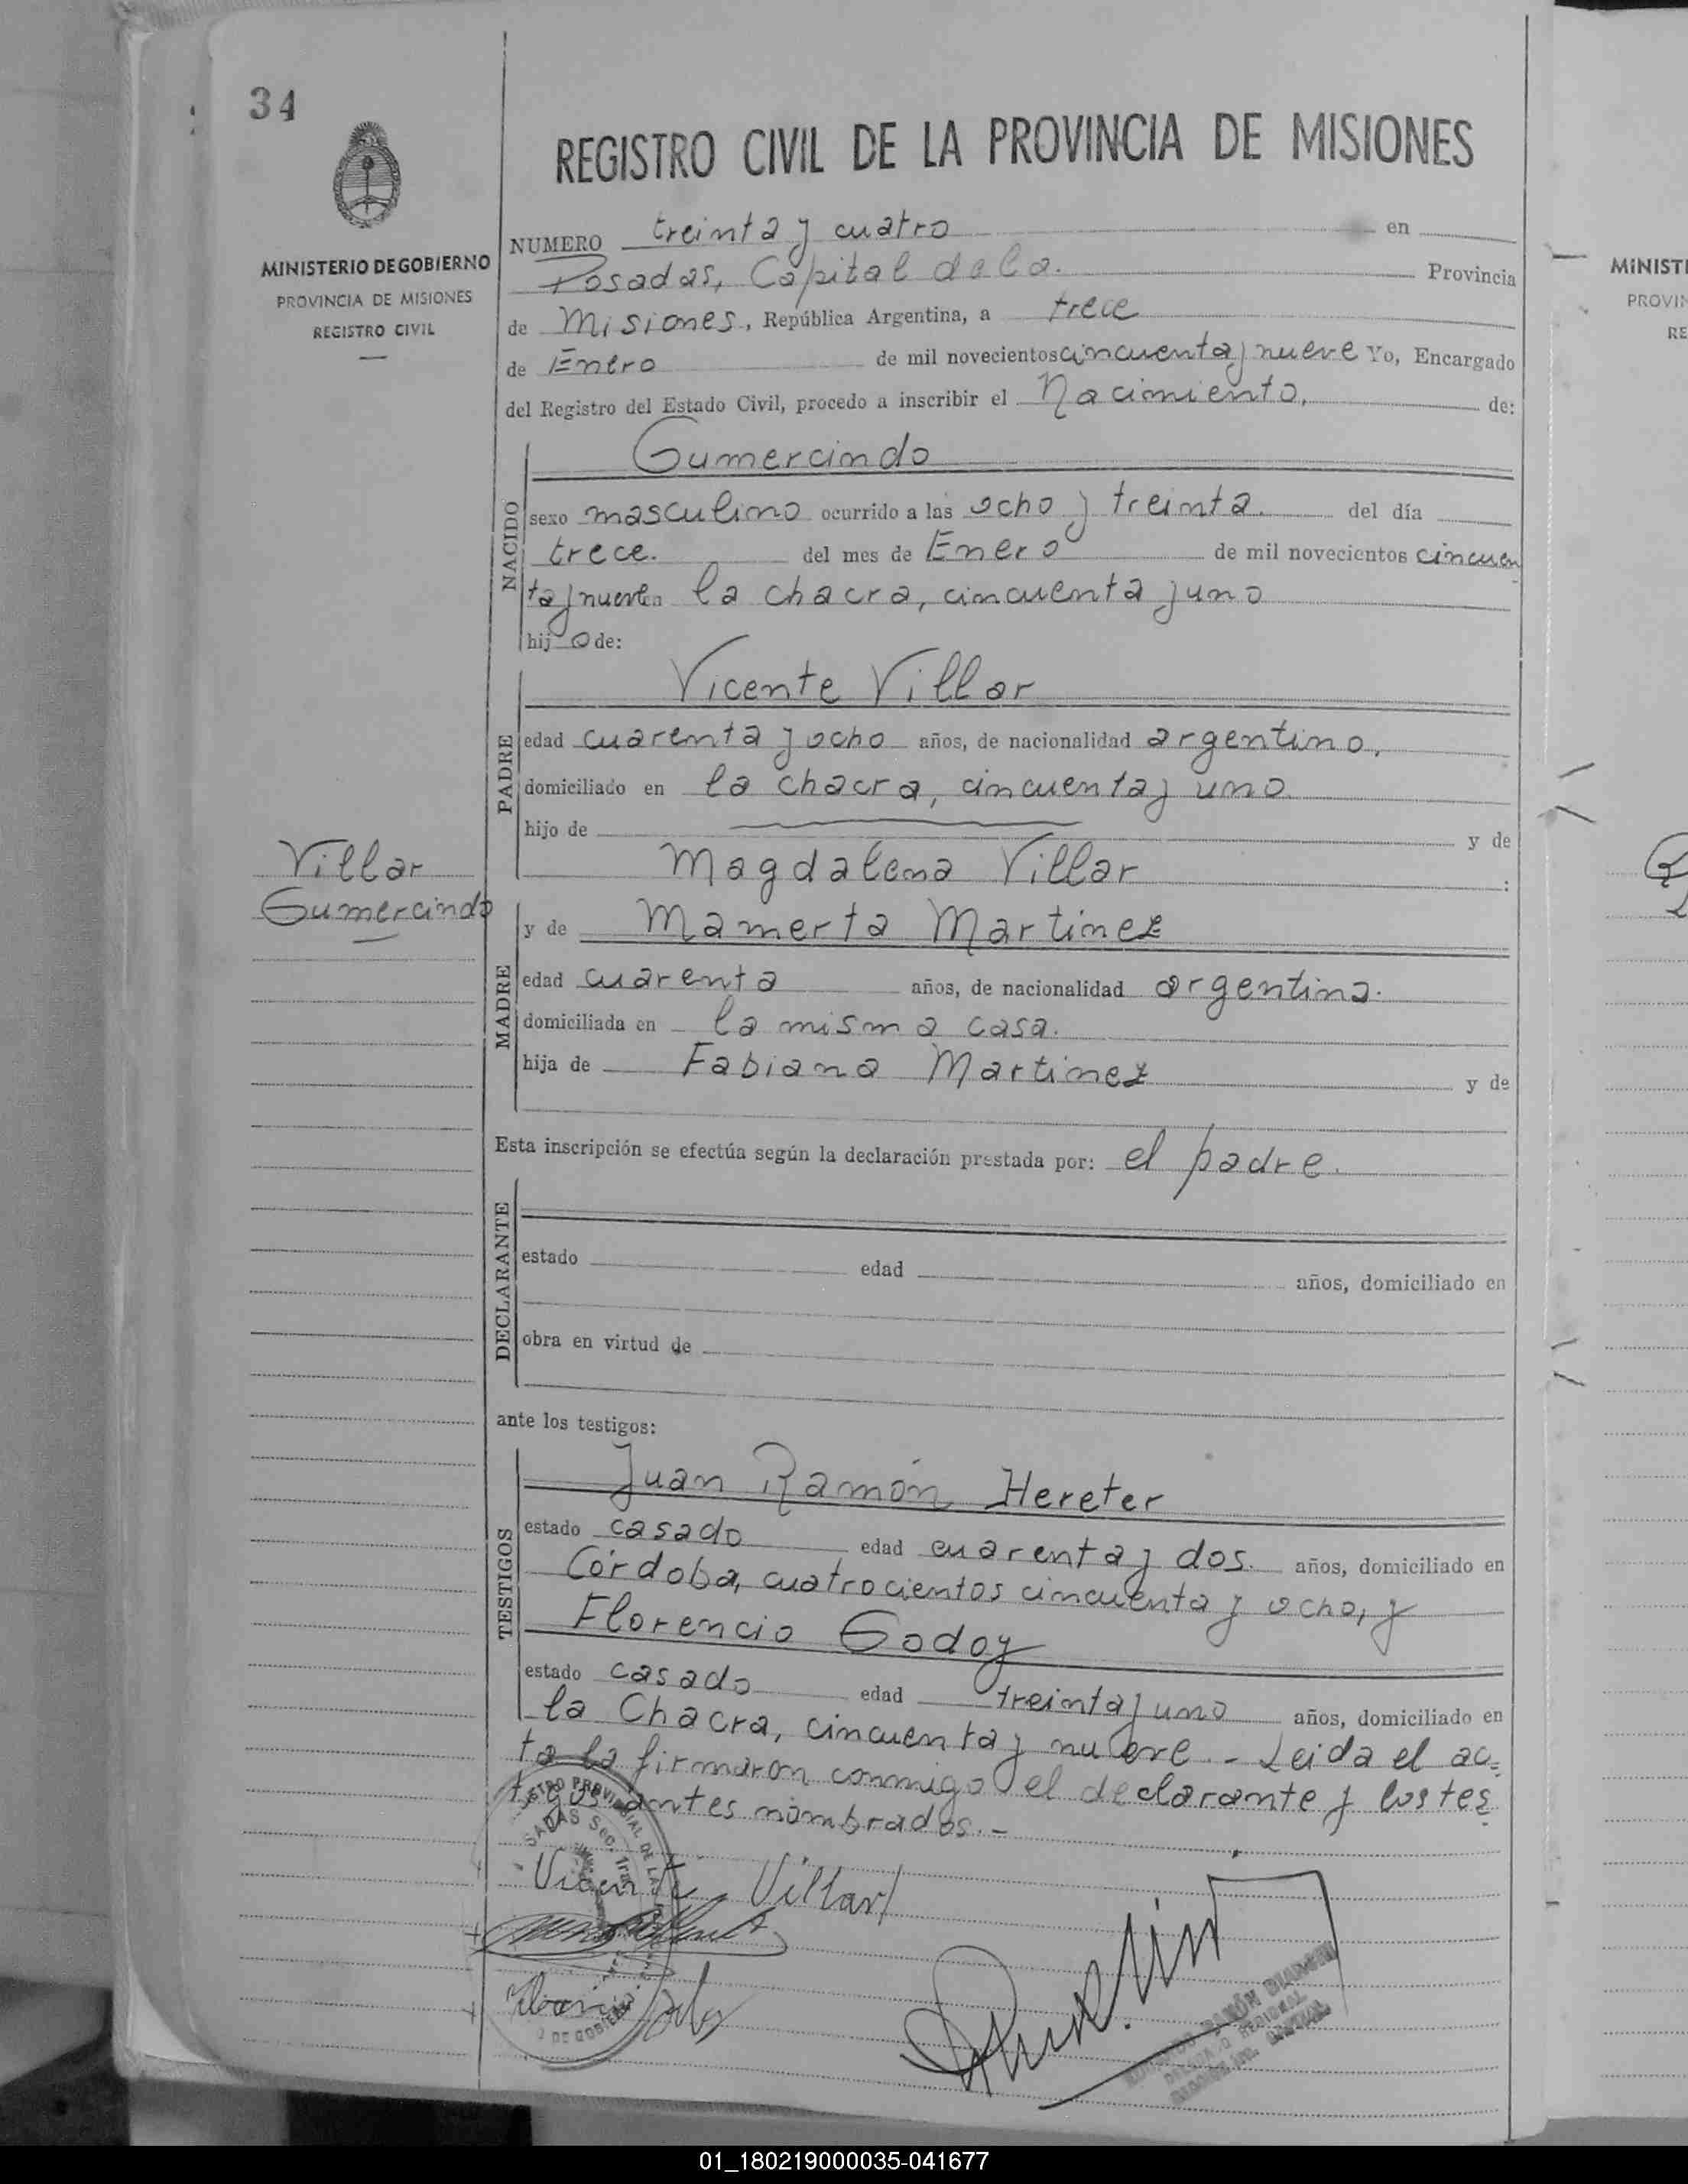 34
REGISTRO CIVIL DE LA PROVINCIA DE MISIONES
MINISTERIO DE GOBIERNO
PROVINCIA DE MISIONES
REGISTRO CIVIL
NUMERO treinta y cuatro en
Posadas, Capital de la. Provincia
de Misiones, República Argentina, a trece
de Enero de mil novecientos cincuenta y nueve Yo, Encargado
del Registro del Estado Civil, procedo a inscribir el Nacimiento, de:
NACIDO
Gumercindo
sexo masculino ocurrido a las ocho y treinta. del día
trece. del mes de Enero de mil novecientos cincuen
ta y nueve en la chacra, cincuenta y uno
hijo de:
PADRE
Vicente Villar
edad cuarenta y ocho años, de nacionalidad argentino,
domiciliado en la chacra, cincuenta y uno
hijo de y de
Magdalena Villar :
Villar
Gumercindo
MADRE
y de Mamerta Martinez
edad cuarenta años, de nacionalidad argentina.
domiciliada en la misma casa.
hija de Fabiana Martinez y de
Esta inscripción se efectúa según la declaración prestada por: el padre.
DECLARANTE
estado edad años, domiciliado en
obra en virtud de
ante los testigos:
TESTIGOS
Juan Ramón Hereter
estado casado edad cuarenta y dos. años, domiciliado en
Córdoba, cuatrocientos cincuenta y ocho, y
Florencio Godoy
estado casado edad treinta y uno años, domiciliado en
la Chacra, cincuenta y nueve.- Leida el ac=
ta la firmaron conmigo el declarante y los tes
tigos antes nombrados.-
Vicente Villar
MINISTE
PROVIN
RE
01_180219000035-041677